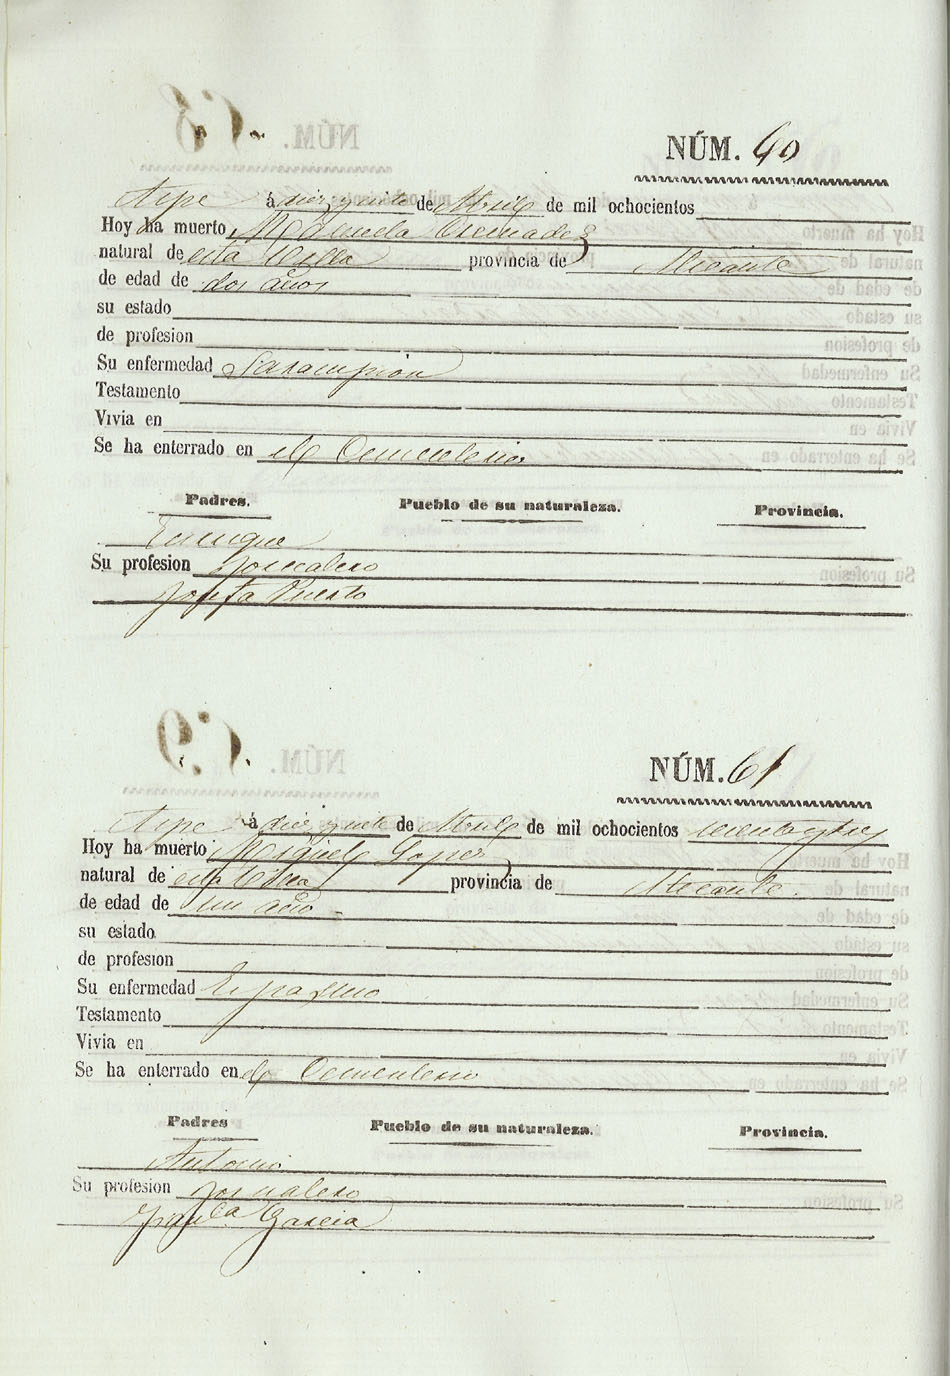 NÚM. 60
Aspe á diez y siete de Abril de mil ochocientos
Hoy ha muerto Manuela Cremades
natural de esta Villa provincia de Alicante
de edad de dos años
su estado
de profesion
Su enfermedad Sarampion
Testamento
Vivia en
Se ha enterrado en el Cementerio
Padres. Pueblo de su naturaleza. Provincia.
Enrique
Su profesion Jornalero
Josefa Puerto
NÚM. 61
Aspe á diez y siete de Abril de mil ochocientos
Hoy ha muerto Miguel Lopez
natural de esta Villa provincia de Alicante.
de edad de un año
su estado
de profesion
Su enfermedad Espasmo
Testamento
Vivia en
Se ha enterrado en el Cementerio
Padres Pueblo de su naturaleza. Provincia.
Antonio
Su profesion Jornalero
Franca Garcia